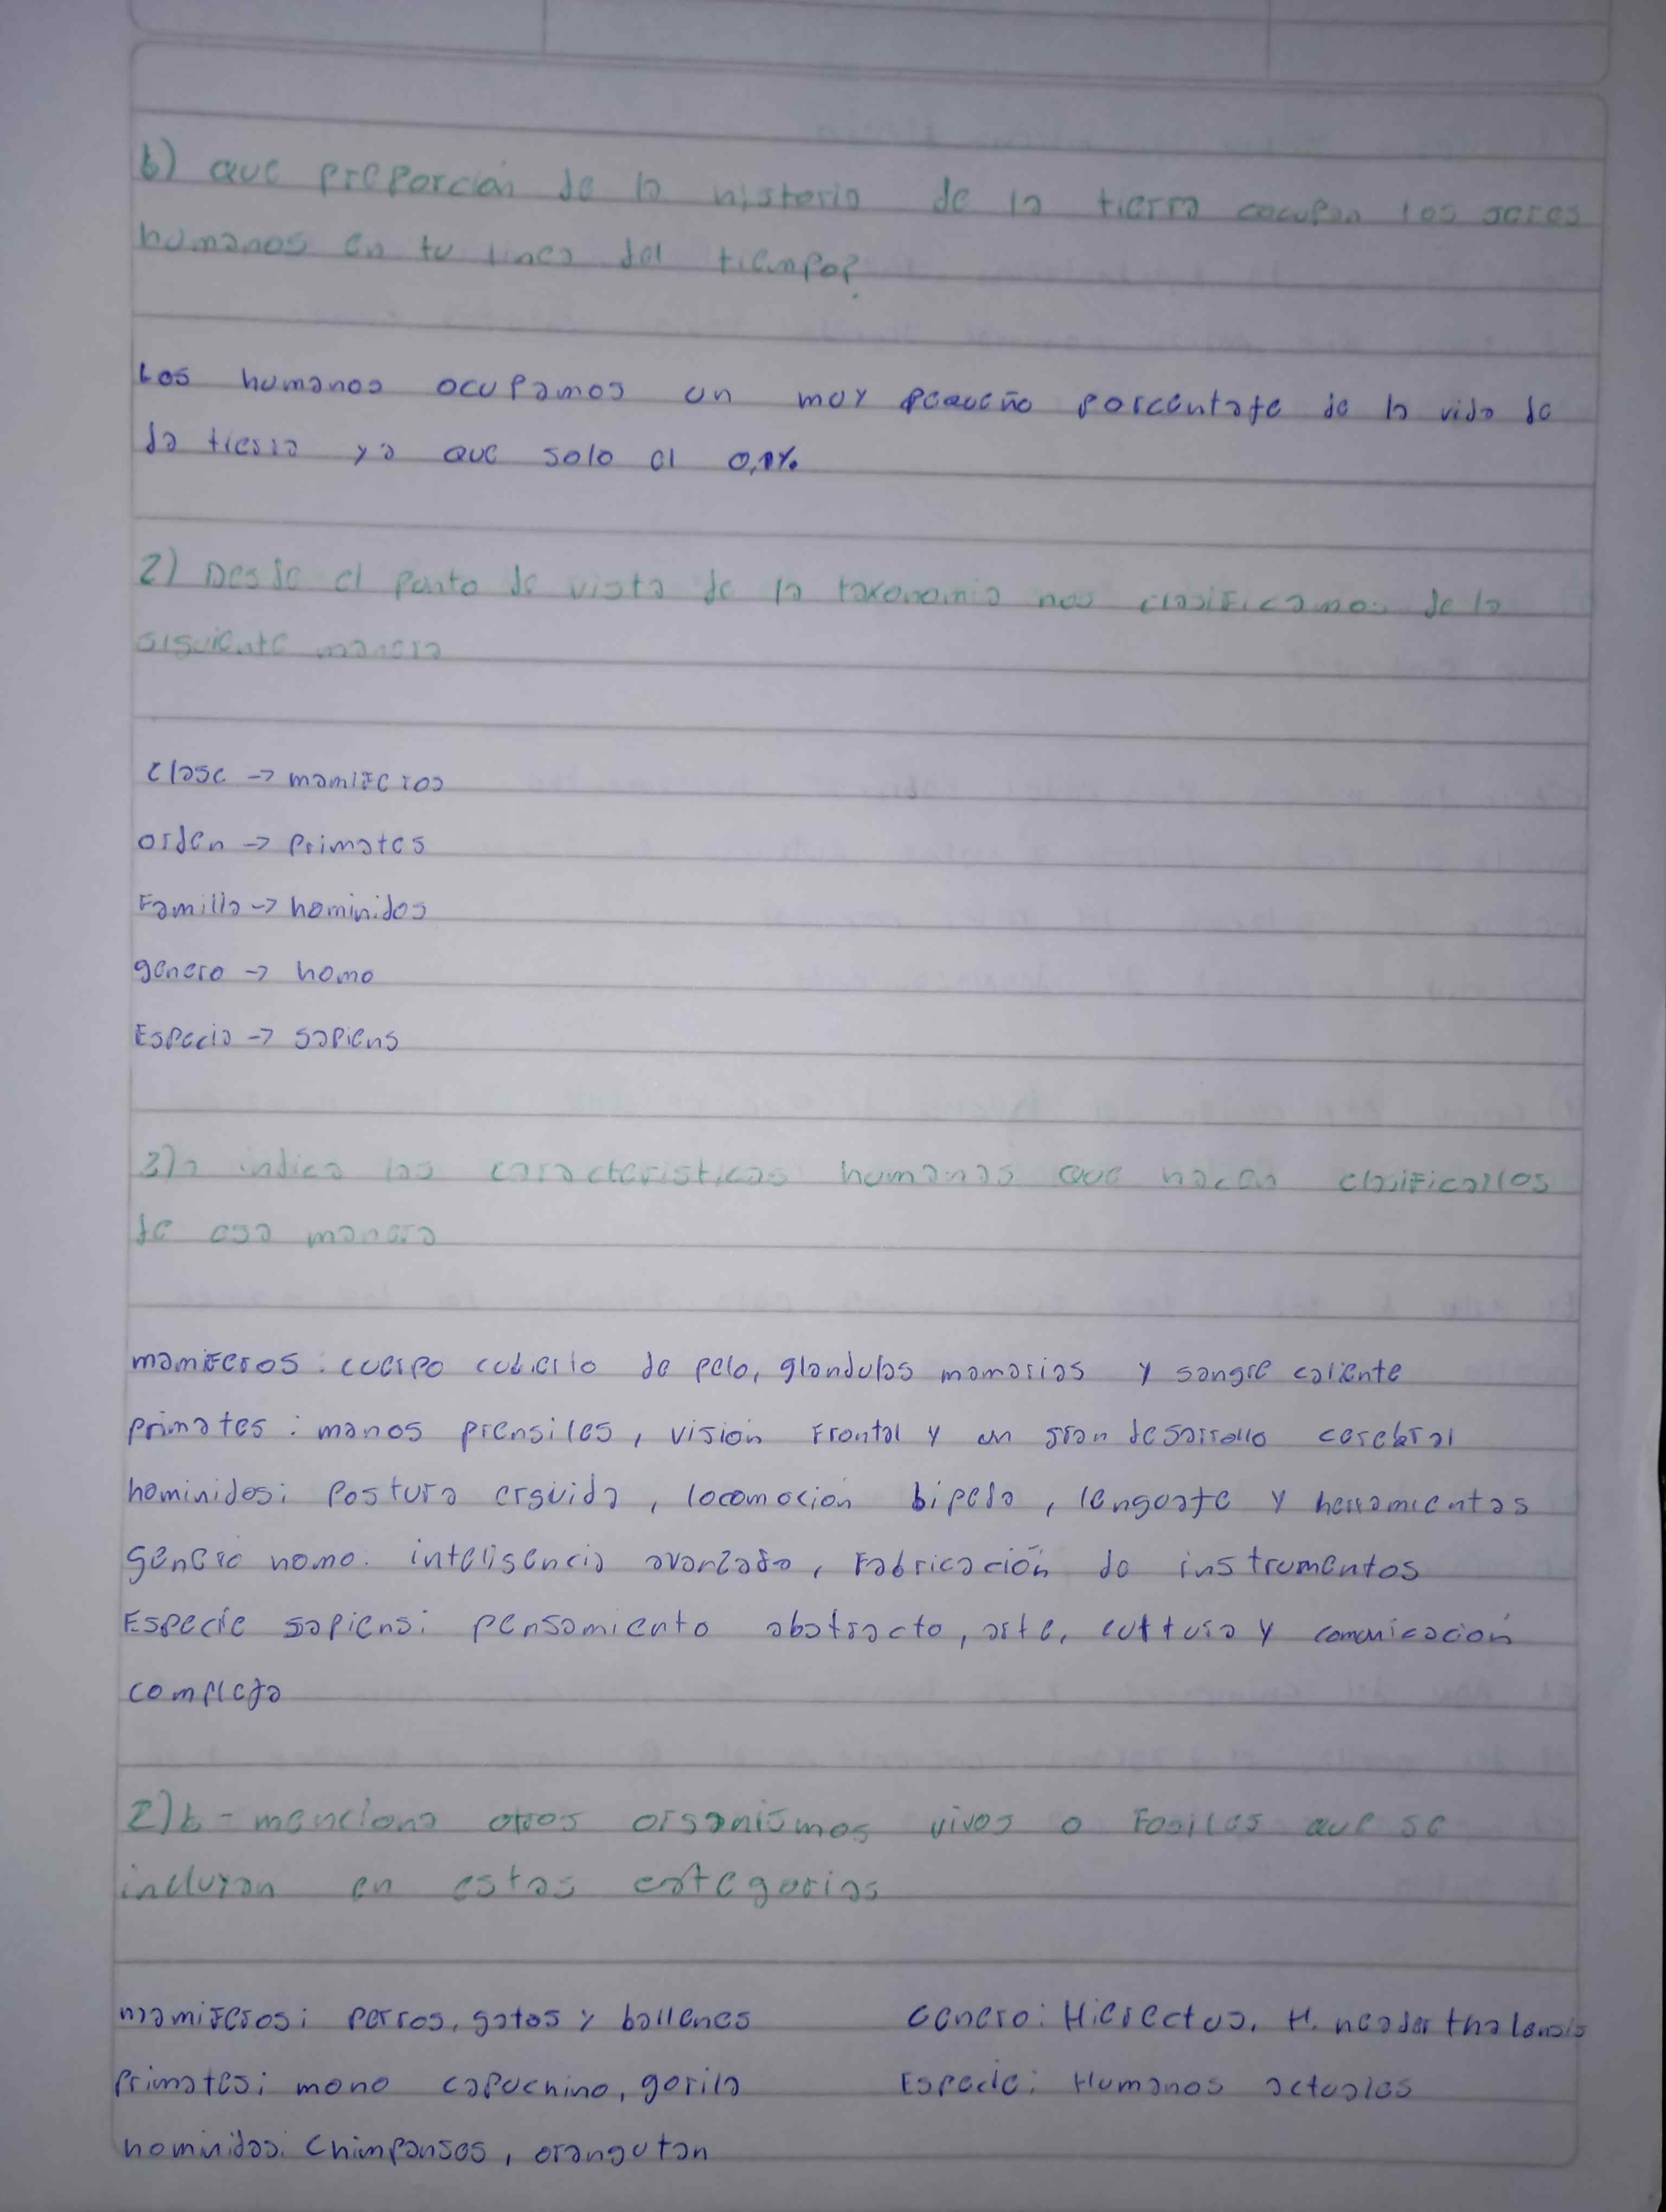 b) que proporción de la historia de la tierra ocupan los seres
humanos en tu linea del tiempo?
Los humanos ocupamos un muy pequeño porcentaje de la vida de
la tierra ya que solo el 0,1%
2) Desde el punto de vista de la taxonomia nos clasificamos de la
siguiente manera
Clase -> mamiferos
orden -> primates
Familia -> hominidos
genero -> homo
Especia -> sapiens
3)a indica las caracteristicas humanas que hacen clasificarlos
de esa manera
mamiferos: cuerpo cubierto de pelo, glandulas mamarias y sangre caliente
primates: manos prensiles, visión frontal y un gran desarrollo cerebral
hominidos: postura erguida, locomoción bipeda, lenguaje y herramientas
genero homo: inteligencia avanzada, Fabricación de instrumentos
Especie sapiens: pensamiento abstracto, arte, cultura y comunicación
compleja
2)b- menciona otros organismos vivos o Fosiles que se
incluyan en estas categorias
mamiferos: perros, gatos y ballenas
primates: mono capuchino, gorila
hominidos: Chimpanses, orangutan
Genero: H. erectus, H. neadarthalensis
Especie: Humanos actuales